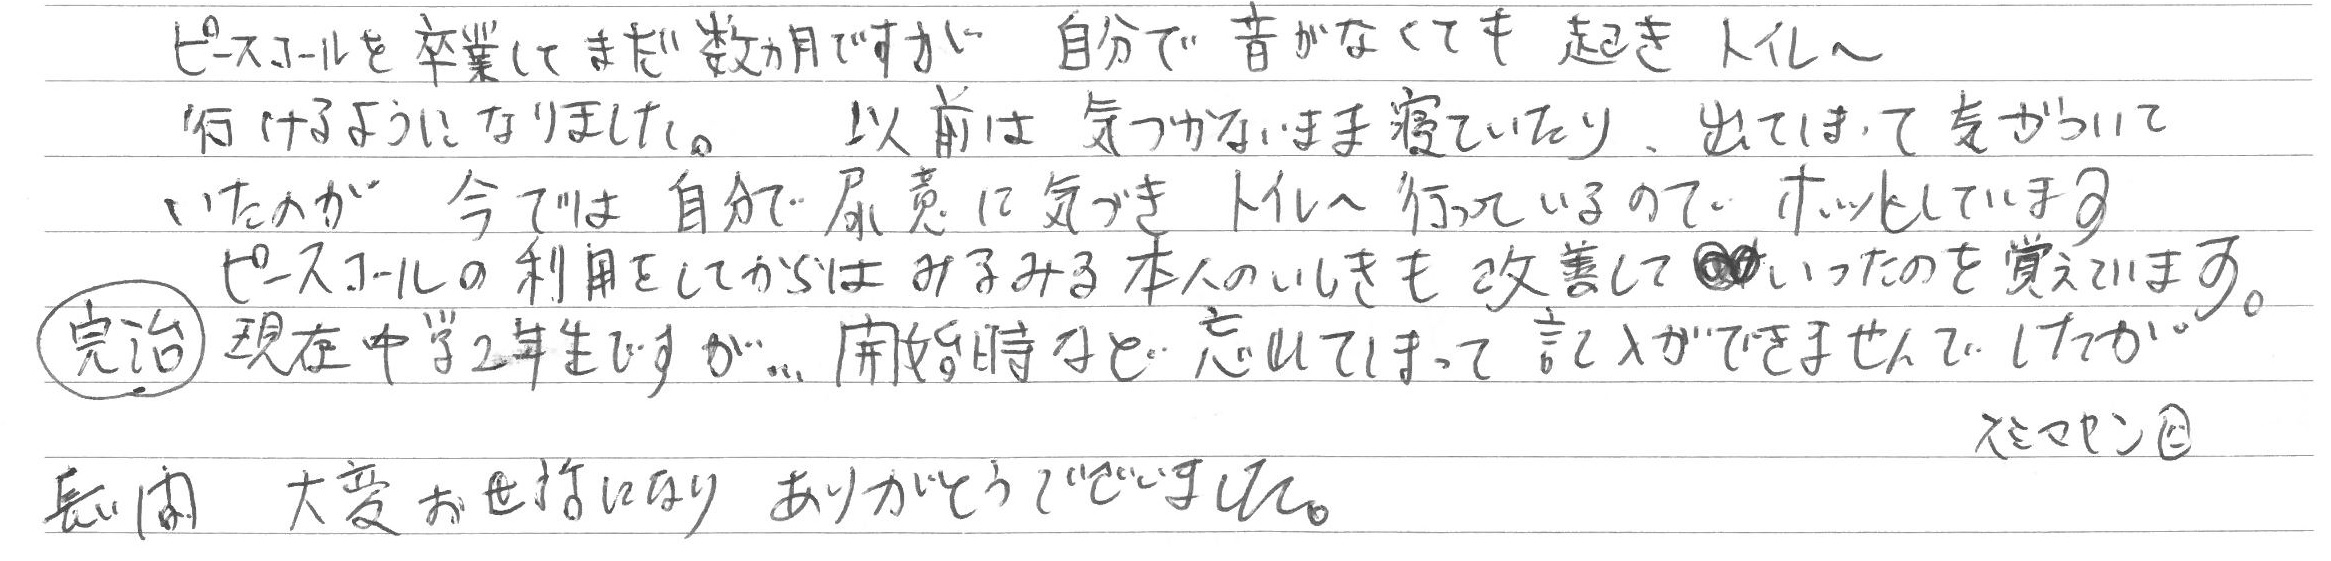 ピースコールを卒業してまだ数カ月ですが 自分で 音がなくても 起き トイレへ
行けるようになりました。 以前は 気づかないまま寝ていたり、出てしまって気がついて
いたのが 今では 自分で 尿意に気づき トイレへ行っているので ホッとしています
ピースコールの利用をしてからは みるみる本人のいしきも 改善していったのを覚えています。
完治 現在中学2年生ですが… 開始時など 忘れてしまって 記入ができませんでしたが
スミマセン
長い間 大変お世話になり ありがとうございました。